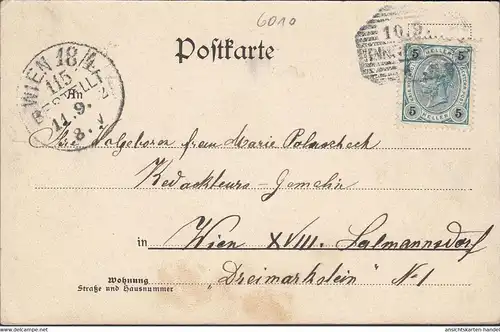 6010
Postkarte
WIEN 18/1
115
BESTELLT
11.9.
8.V
5 HELLER 5
5 HELLER 5
An
Wolgeboren frau Marie
Redackteurs-Gemalin
in Wien XVIII. Salmannsdorf
Wohnung
Straße und Hausnummer
„Dreimarkstein" No 1
www.ansichtskarten-handel.com